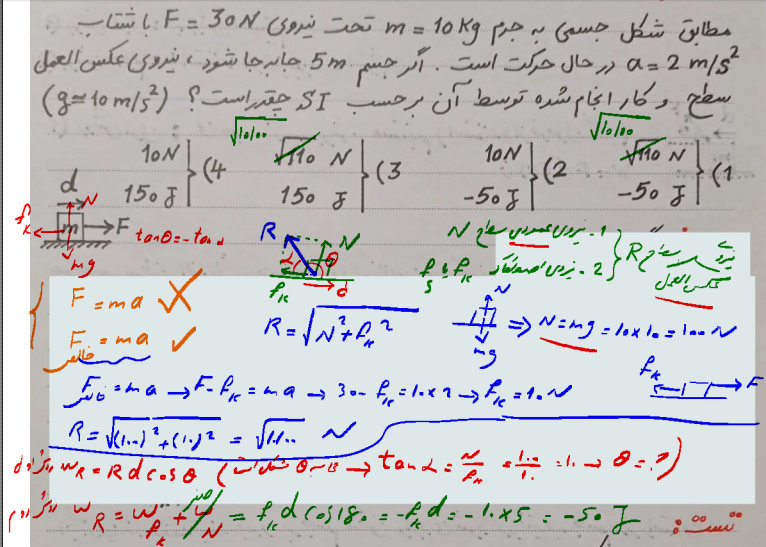 مطابق شکل جسمی به جرم m = 10 Kg تحت نیروی F = 30N با شتاب
a = 2 m/s² در حال حرکت است . اگر جسم 5m جابه جا شود ، نیروی عکس العمل
سطح و کار انجام شده توسط آن بر حسب SI چقدر است ؟ (g ≈ 10 m/s²)
√10100 √10100
1) √110 N -50 J
2) 10N -50 J
3) √110 N 150 J
4) 10N 150 J
d N
fk m F
mg
tanθ = -tanα
R N α θ fk d
1 - نیروی عمودی سطح N
2 - نیروی اصطکاک fk یا fs
R سطح عکس العمل
F = ma ✗
F = ma ✓
خالص
R = √N² + fk²
N mg ⇒ N = mg = 10 × 10 = 100 N
fk F
F خالص = ma → F - fk = ma → 30 - fk = 10 × 2 → fk = 10 N
R = √(100)² + (10)² = √10100 N
WR = R d cosθ ( → tanα = N/fk = 100/10 = 10 → θ = ? )
WR = W fk + W N صفر = fk d cos180 = -fk d = -10 × 5 = -50 J
تست :